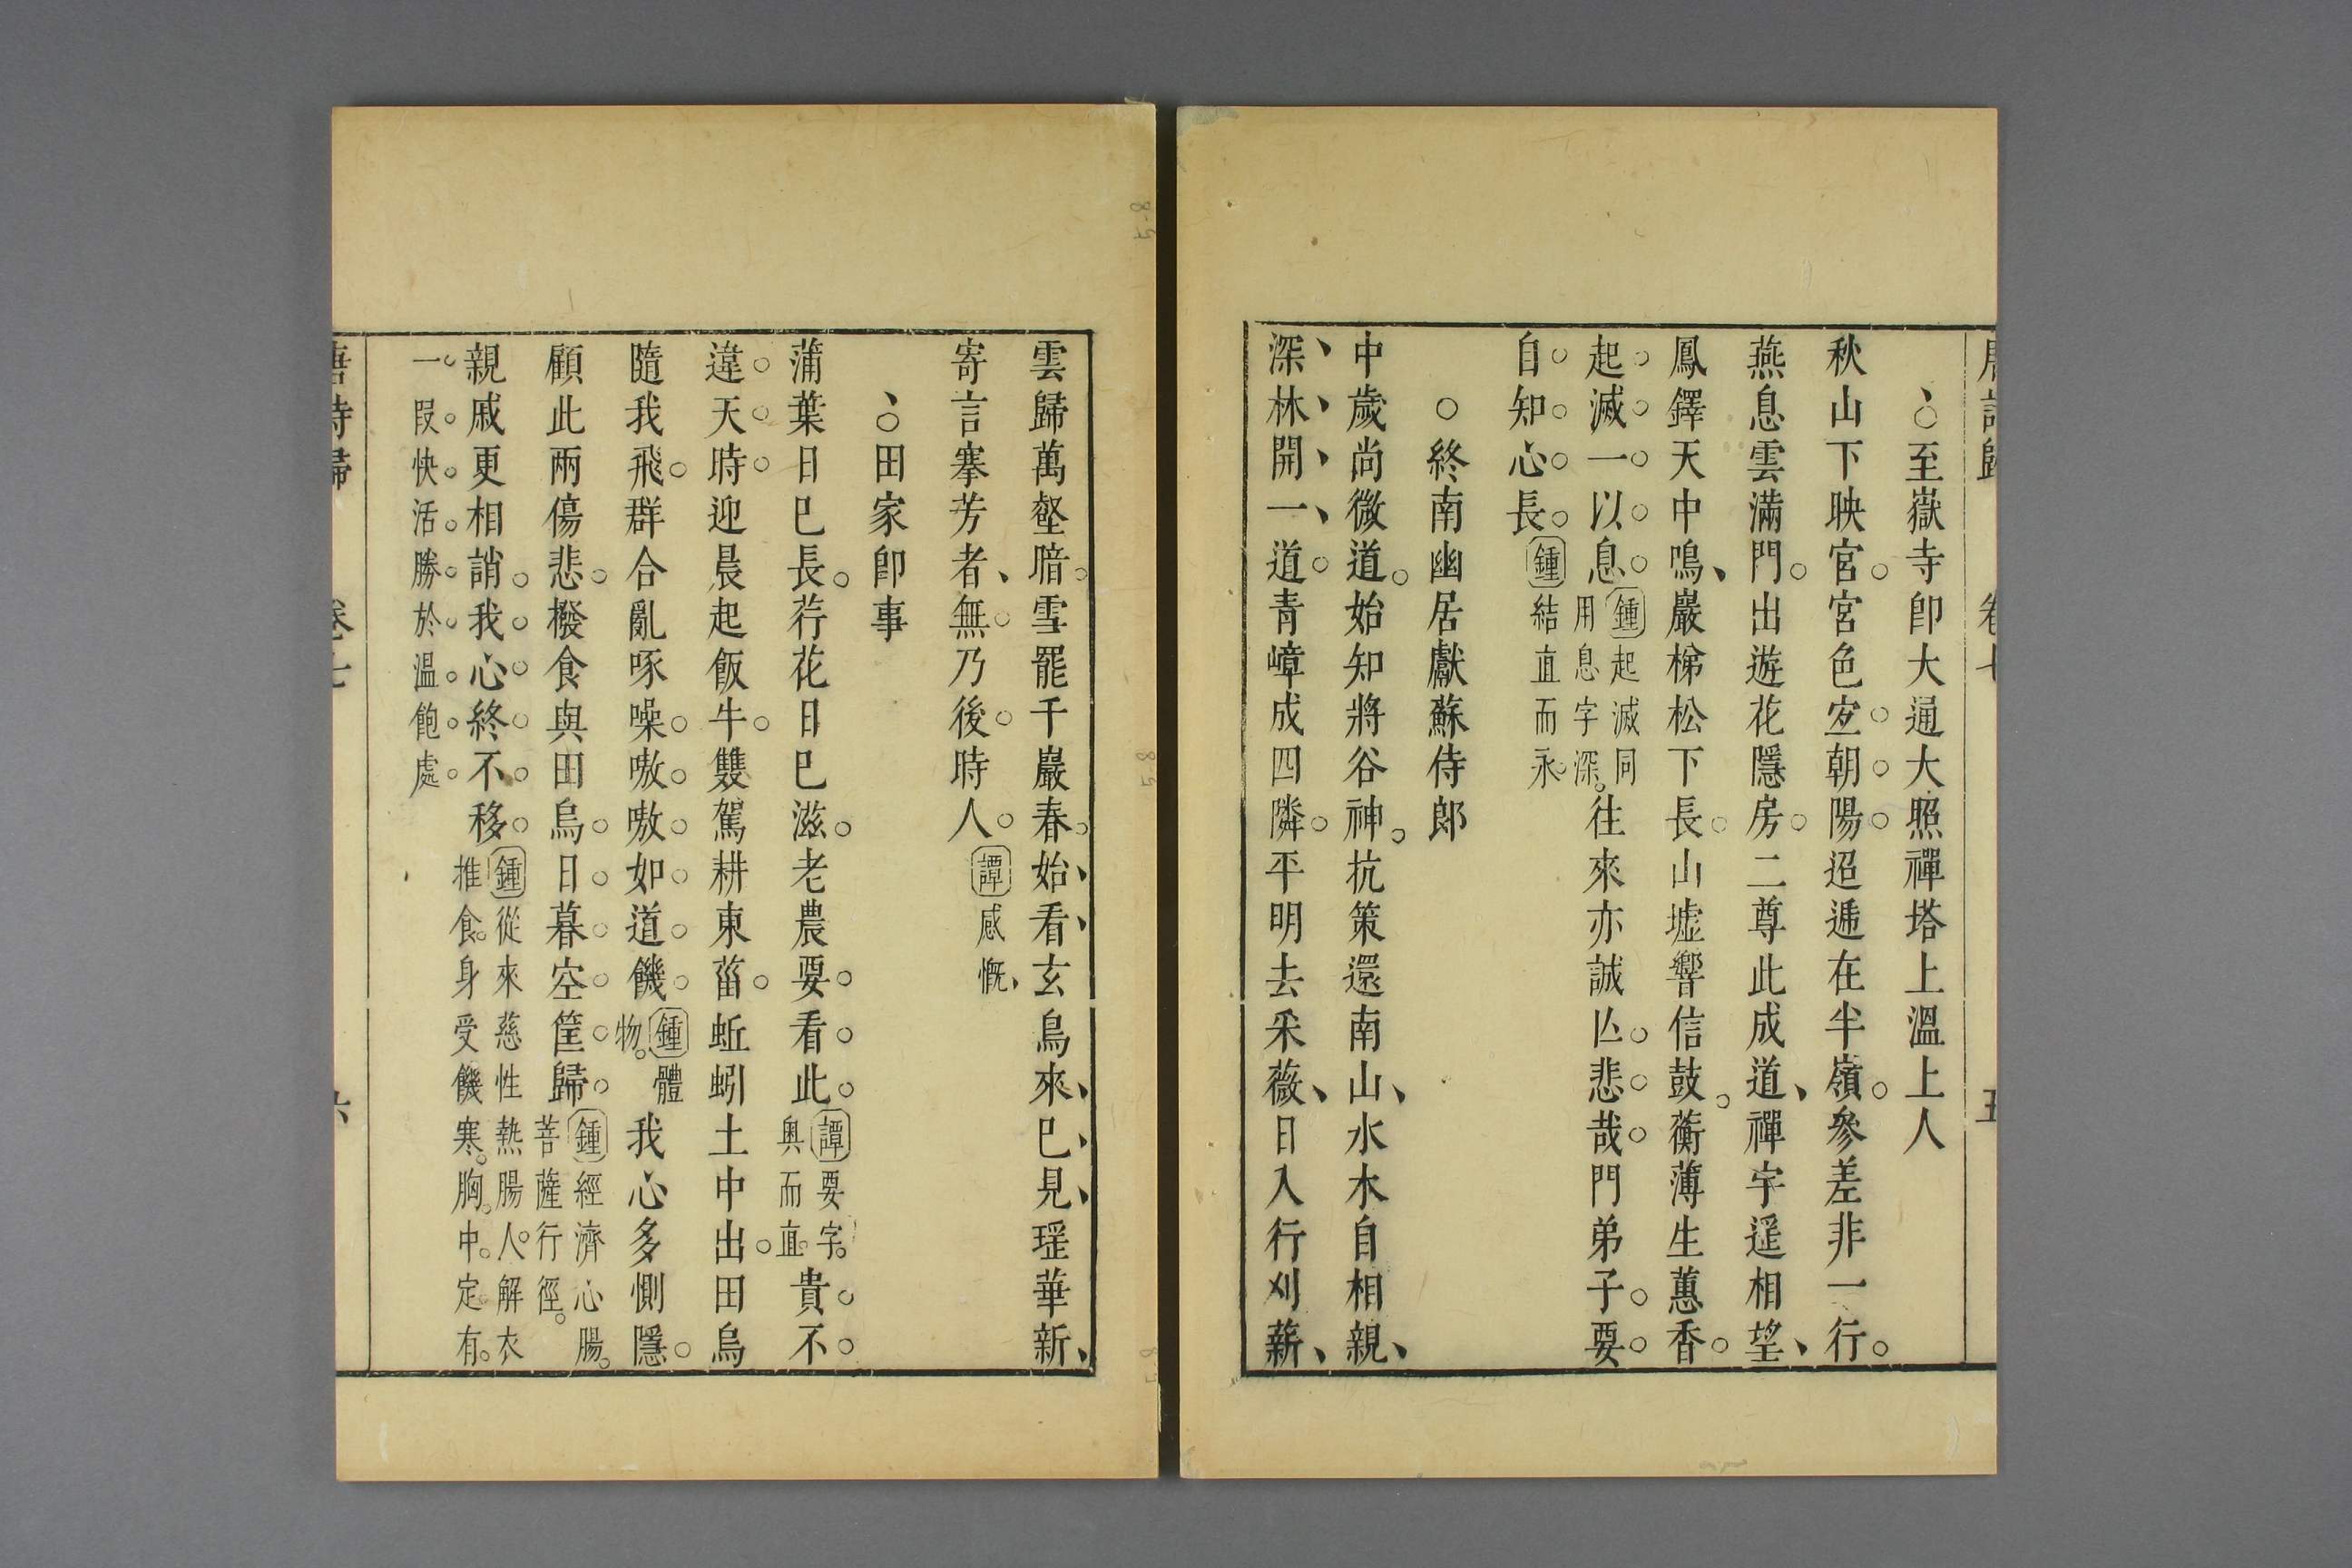 唐詩歸 卷七 五
至嶽寺卽大通大照禪塔上溫上人
秋山下映宮宮色宓朝陽迢遞在半嶺參差非一行
燕息雲滿門出遊花隱房二尊此成道禪宇遥相望
鳳鐸天中鳴巖梯松下長山墟響信鼓蘅薄生蕙香
起滅一以息鍾起滅同用息字深往來亦誠亾悲哉門弟子要
自知心長鍾結直而永
終南幽居獻蘇侍郎
中歲尚微道始知將谷神抗策還南山水木自相親
深林開一道青嶂成四隣平明去采薇日入行刈薪
雲歸萬壑暗雪罷千巖春始看玄鳥來已見瑶華新
寄言搴芳者無乃後時人譚感慨
田家卽事
蒲葉日巳長荇花日巳滋老農要看此譚要字奥而直貴不
違天時迎晨起飯牛雙駕耕東菑蚯蚓土中出田烏
隨我飛群合亂啄噪嗷嗷如道饑鍾體物我心多惻隱
顧此兩傷悲撥食與田烏日暮空筐歸鍾經濟心腸菩薩行徑
親戚更相誚我心終不移鍾從來慈性熱腸人解衣推食身受饑寒胸中定有
一段快活勝於温飽處
唐詩歸 卷七 六